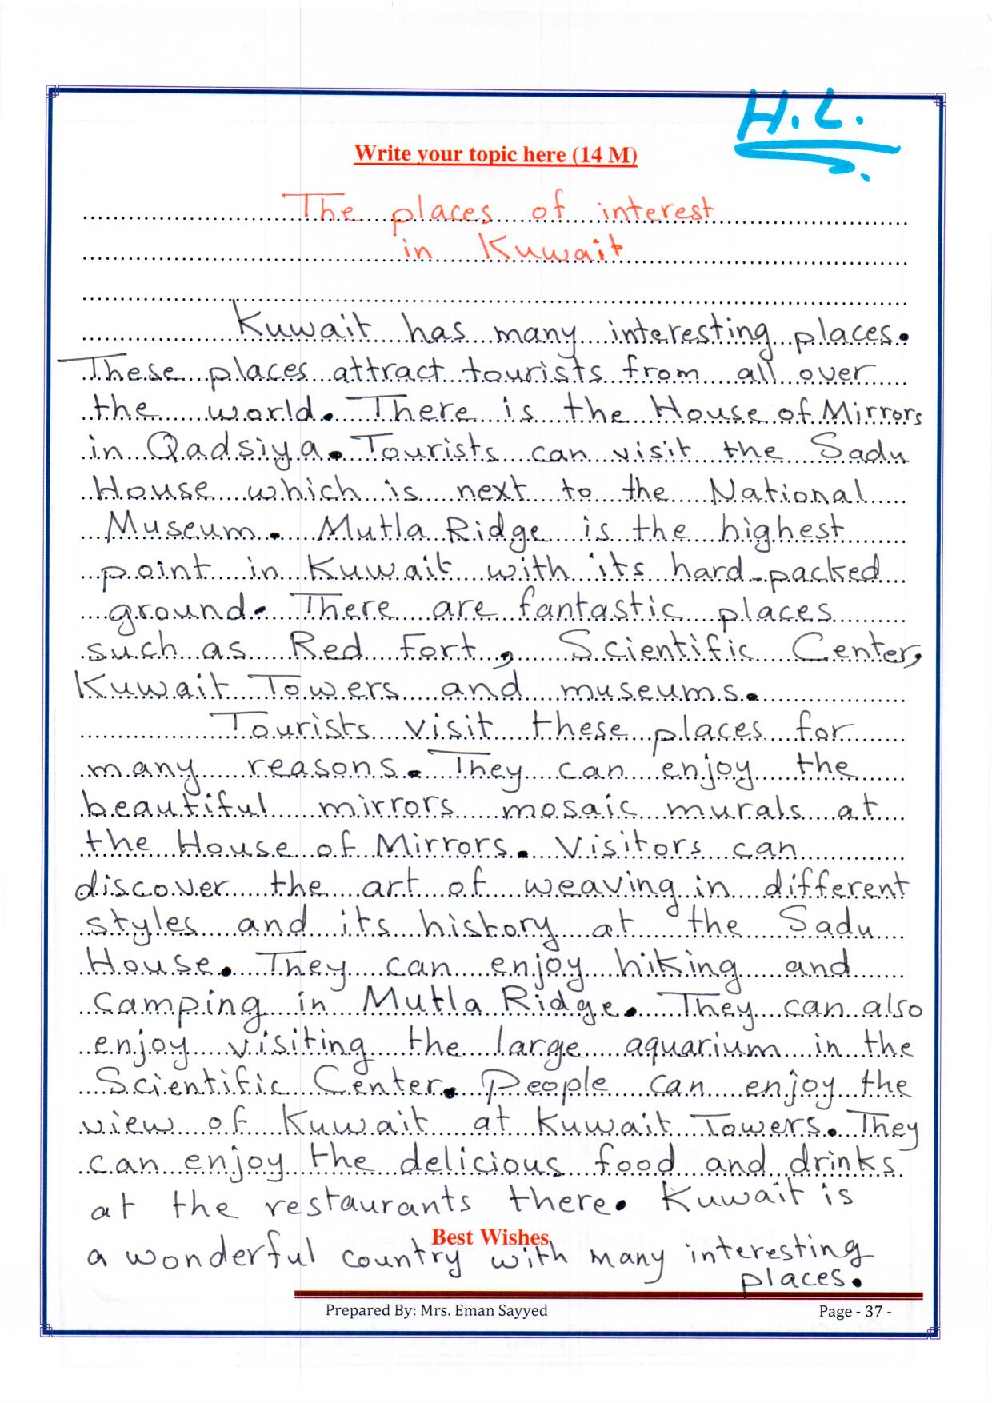 H.L.
Write your topic here (14 M)
The places of interest
in Kuwait
Kuwait has many interesting places.
These places attract tourists from all over
the world. There is the House of Mirrors
in Qadsiya. Tourists can visit the Sadu
House which is next to the National
Museum. Mutla Ridge is the highest
point in Kuwait with its hard-packed
ground. There are fantastic places
such as Red Fort, Scientific Center,
Kuwait Towers and museums.
Tourists visit these places for
many reasons. They can enjoy the
beautiful mirrors mosaic murals at
the House of Mirrors. Visitors can
discover the art of weaving in different
styles and its history at the Sadu
House. They can enjoy hiking and
camping in Mutla Ridge. They can also
enjoy visiting the large aquarium in the
Scientific Center. People can enjoy the
view of Kuwait at Kuwait Towers. They
can enjoy the delicious food and drinks
at the restaurants there. Kuwait is
Best Wishes
a wonderful country with many interesting
places.
Prepared By: Mrs. Eman Sayyed
Page - 37 -